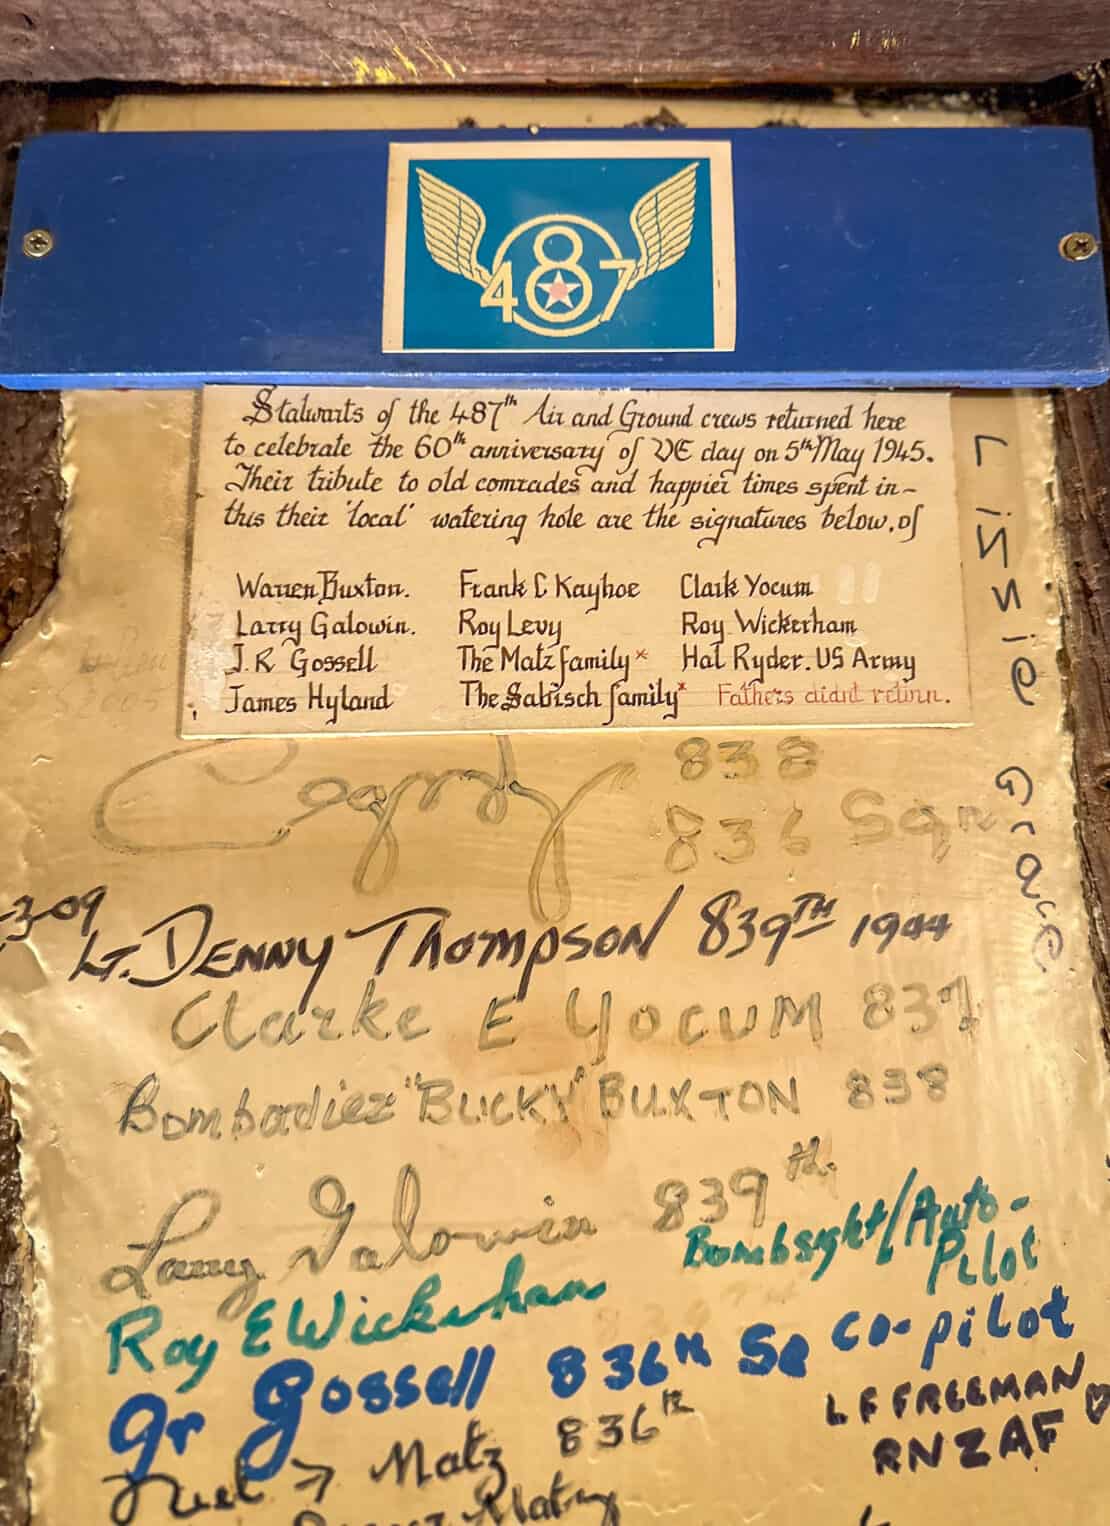 487
Stalwarts of the 487th Air and Ground crews returned here
to celebrate the 60th anniversary of VE day on 5th May 1945.
Their tribute to old comrades and happier times spent in-
this their 'local' watering hole are the signatures below, of
Warren Buxton. Frank C Kayhoe Clark Yocum
Larry Galowin. Roy Levy Roy Wickerham
J.R Gossell The Matz family* Hal Ryder. US Army
James Hyland The Sabisch family* Fathers didnt return.
Lissie Grace
838
836 Sqn
3-09
Lt. DENNY THOMPSON 839TH 1944
Clarke E YOCUM 837
Bombadier "BUCKY" BUXTON 838
Larry Galowin 839th.
Bombsight/Auto-
Pilot
Roy E Wickerham
Jr Gossell 836th Sq CO-PILOT
L F FREEMAN
RNZAF
Matz 836th
Matz